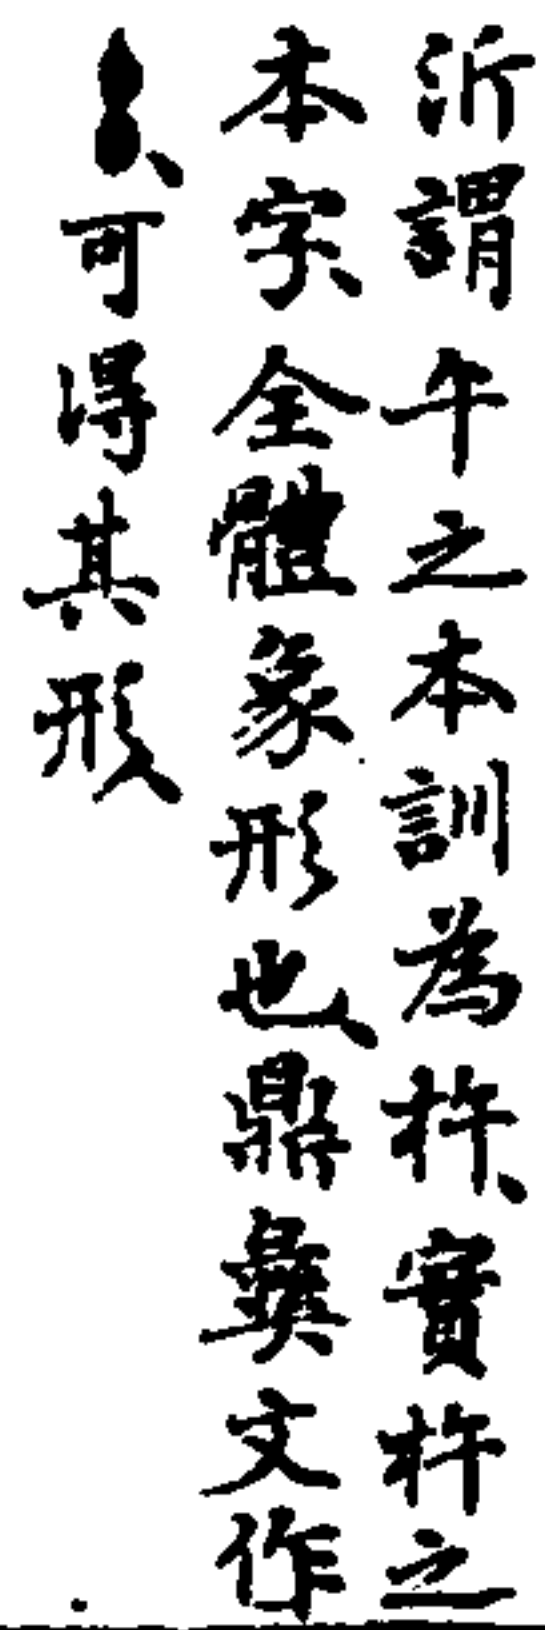 所謂午之本訓為杵、實杵之
本字、全體象形也、鼎彝文作
、可得其形、